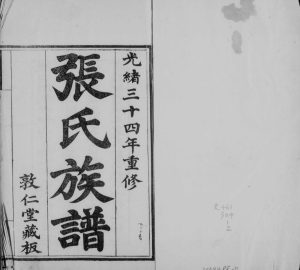 光緒三十四年重修
張氏族譜
敦仁堂藏板